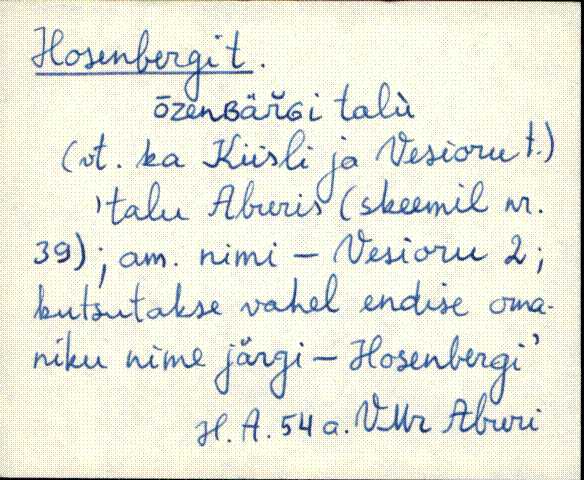 Hosenbergi t.
ōzenʙäřɢi talù
(vt. ka Kiisli ja Vesioru t.)
'talu Aburis (skeemil nr.
39); am. nimi – Vesioru 2;
kutsutakse vahel endise oma-
niku nime järgi – Hosenbergi'
H. A. 54 a. VMr Aburi